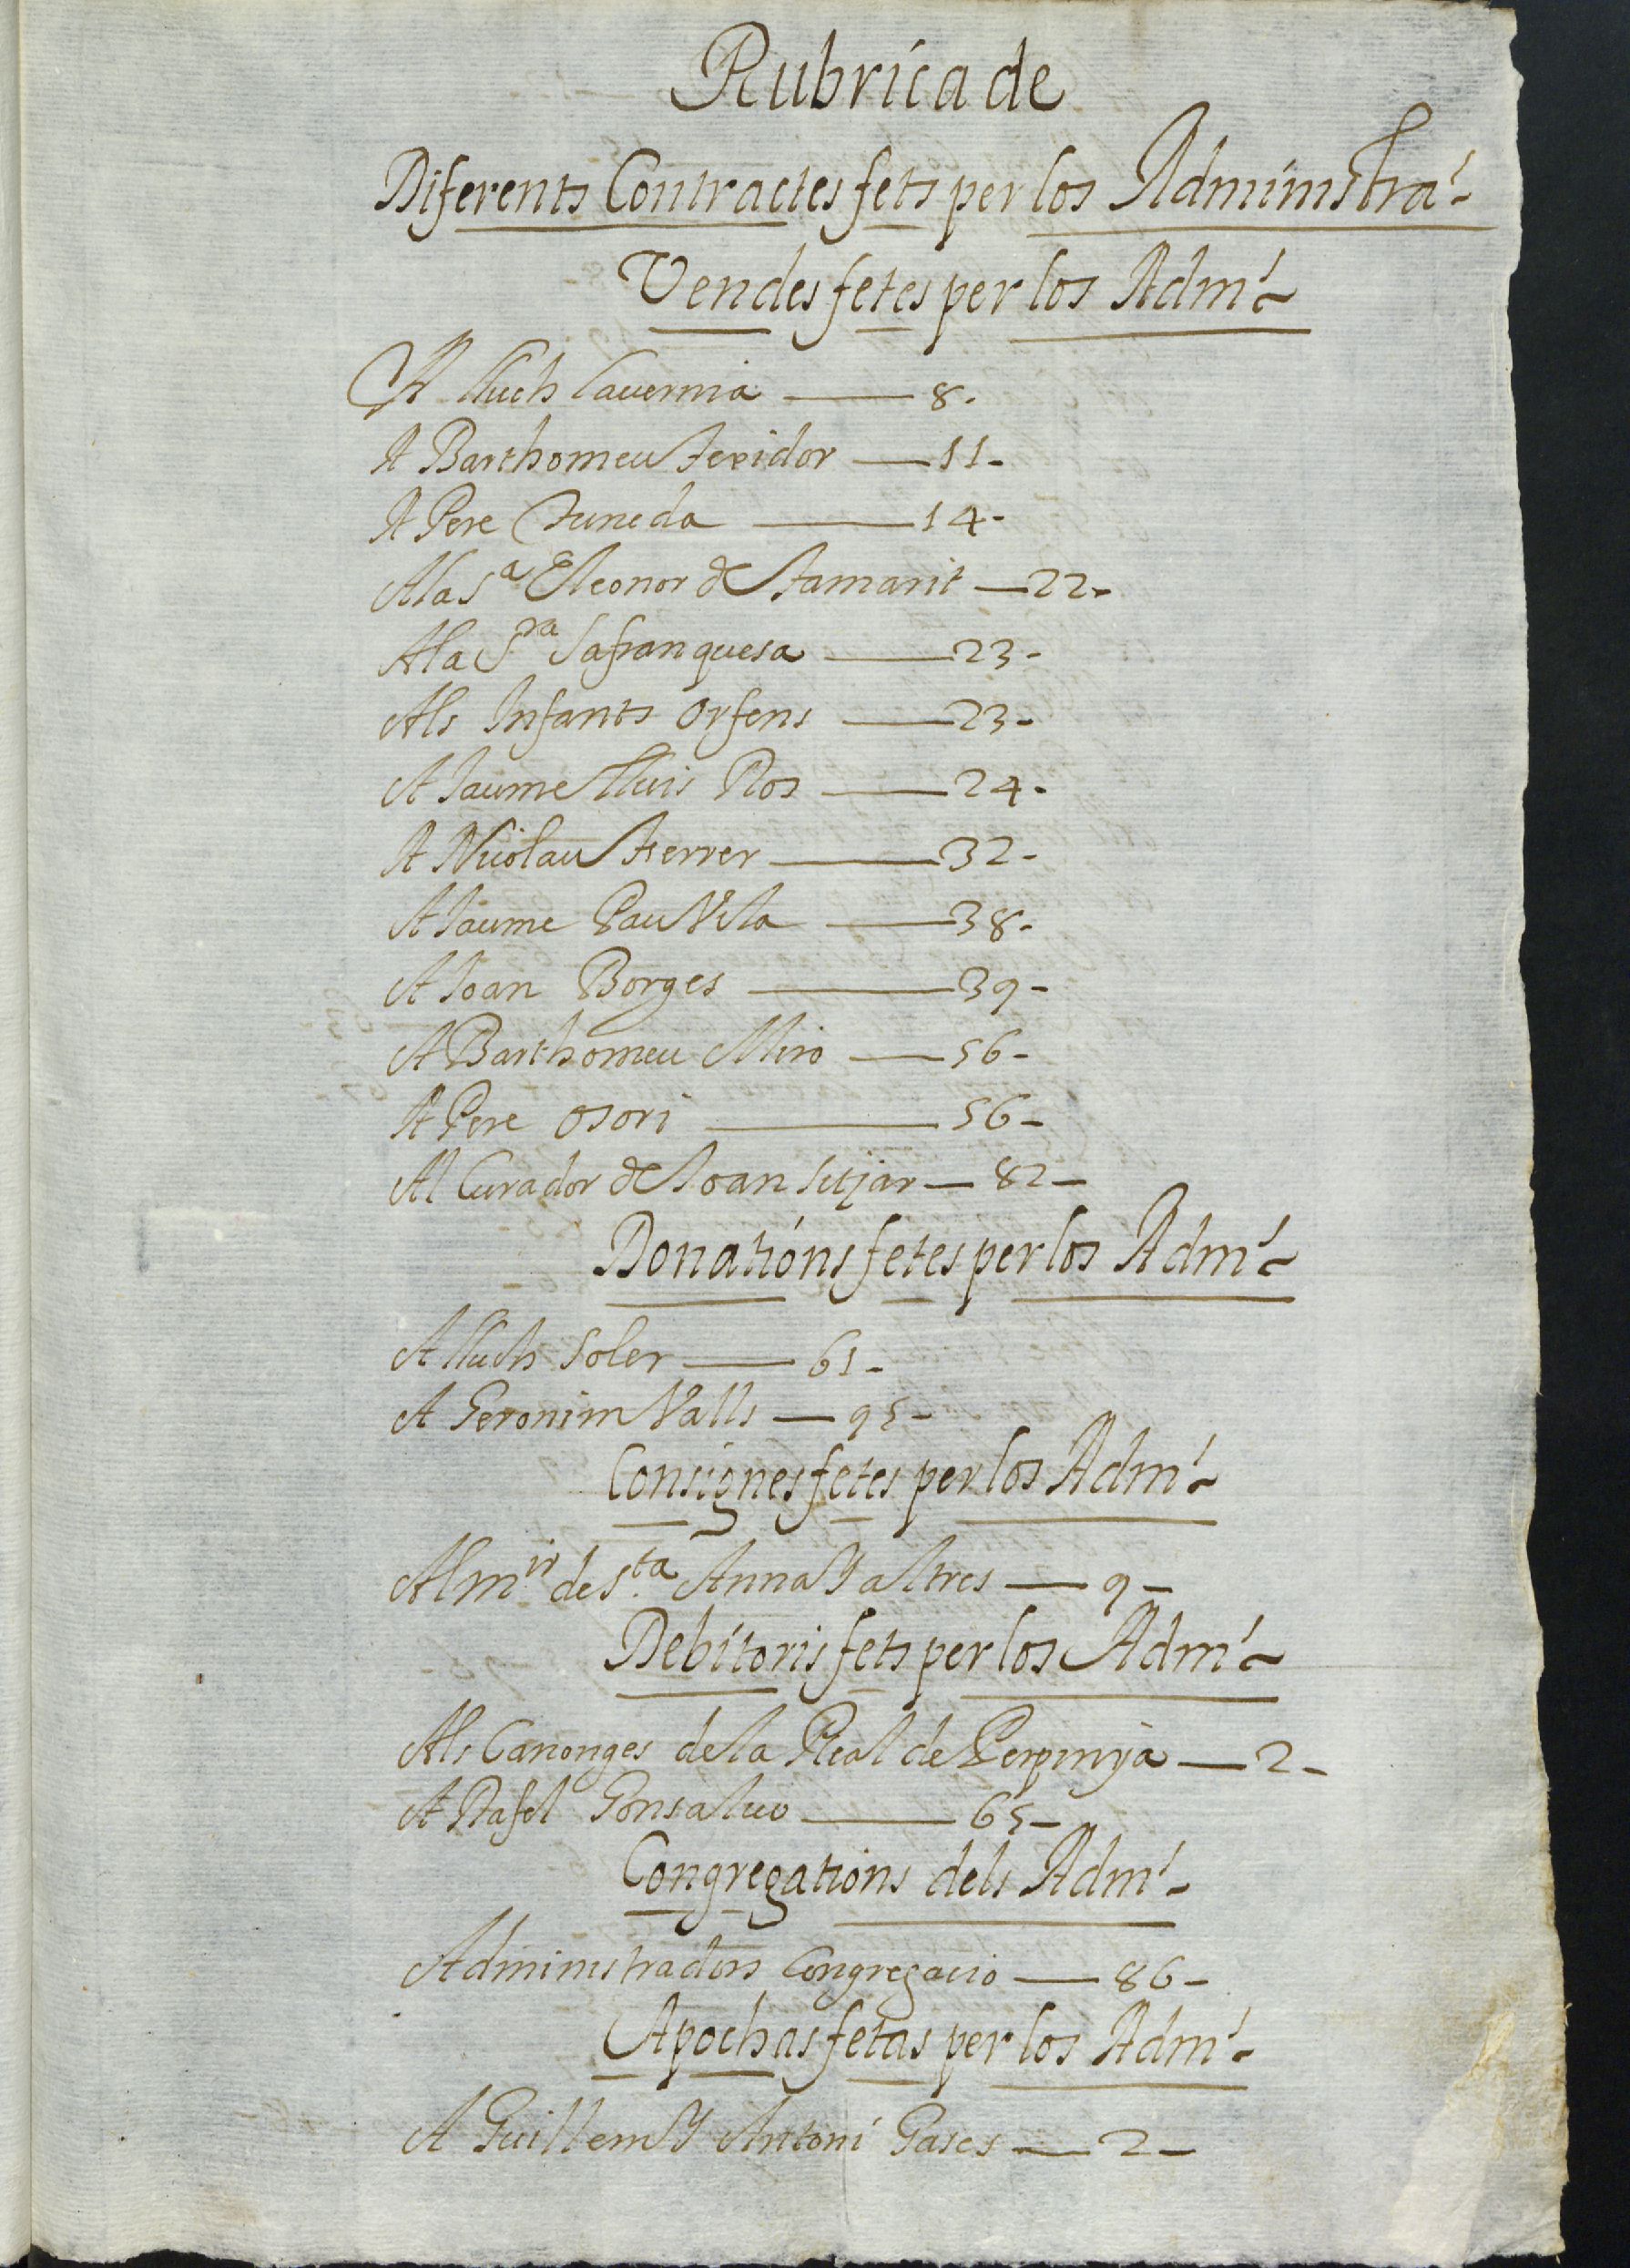 Rubrica de
Diferents Contractes fets per los Administra.
Vendes fetes per los Adm.
A lluch Cavernia — 8.
A Barthomeu Texidor — 11-
A Pere Cuneda — 14-
A la S.a Eleonor de Tamarit — 22-
A la S.ra Safranquesa — 23-
Als Infants Orfens — 23-
A Jaume lluis Ros — 24-
A Nicolau Ferrer — 32-
A Jaume Pau Vila — 38-
A Joan Borges — 39-
A Barthomeu Miro — 56-
A Pere Osori — 56-
Al Curador de Joan Sitjar — 82-
Donations fetes per los Adm.
A lluch Soler — 61-
A Geronim Valls — 95-
Consignes fetes per los Adm.
Al m.ir de S.ta Anna Y altres — 9-
Debitoris fets per los Adm.
Als Canonges de la Real de Perpinya — 2-
A Rafel Gonsalvo — 65-
Congregations dels Adm.
Administradors Congregacio — 86-
Apochas fetas per los Adm.
A Guillem Y Antoni Gases — 2-